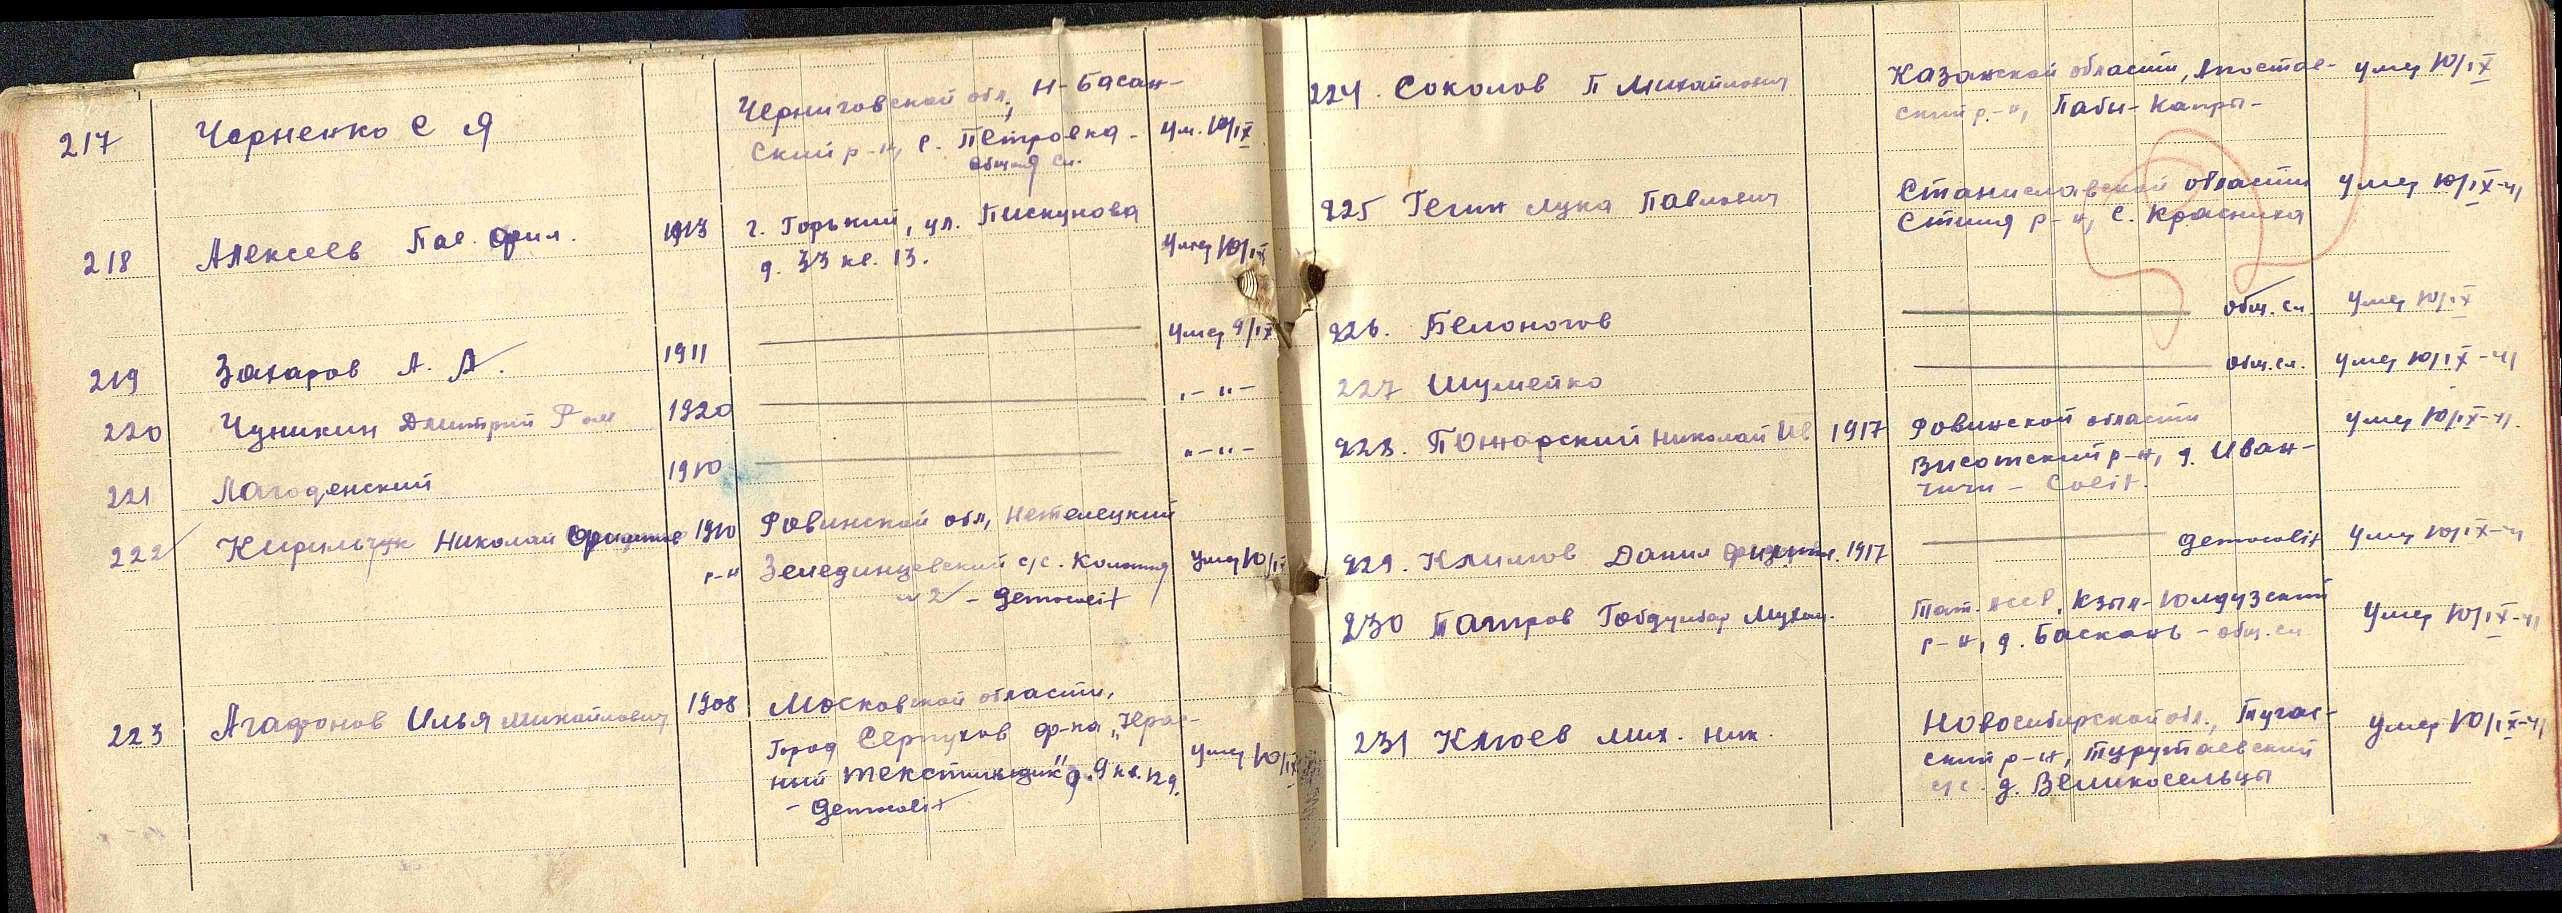 217 Черненко С Я Черниговской обл., Н-Басан-
ский р-н, с. Петровка - Ум. 10/IX
общая сл.
218 Алексеев Пав. Фил. 1913 г. Горький, ул. Пискунова
д. 33 кв. 13. Умер 10/IX
219 Захаров А. А. 1911 Умер 9/IX
220 Чуникин Дмитрий Ром 1920 "-"-
221 Лагоденский 1910 "-"-
222 Кирильчук Николай 1910 Ровинской обл,
р-н с/с. Колония Умер 10/IX
№ 2 -
223 Агафонов Илья Михайлович 1908 Московской области,
город Серпухов ф-ка „Крас-
ный текстильщик" д. 9 кв. 129. Умер 10/IX
-
224. Соколов П Михайлович Казанской области, Апостов-
ский р-н, Умер 10/IX
225 Гегин Лука Павлович Станиславской области Умер 10/IX-41
р-н, с. Красника
226. Белоногов общ. сл. Умер 10/IX
227 Шумейко общ. сл. Умер 10/IX-41
228. Пожарский Николай Ив 1917 Ровинской области Умер 10/IX-41.
Висотский р-н, д. Иван-
чичи - Colit.
229. Климов Данил 1917 Умер 10/IX-41
230 Татров Мухам. Тат. АССР, Кзыл-Юлдузский
р-н, д. Баскань - общ. сл Умер 10/IX-41
231 Клюев Мих. Ник. Новосибирской обл.,
ский р-н, Турутаевский Умер 10/IX-41
с/с. д. Великосельцы